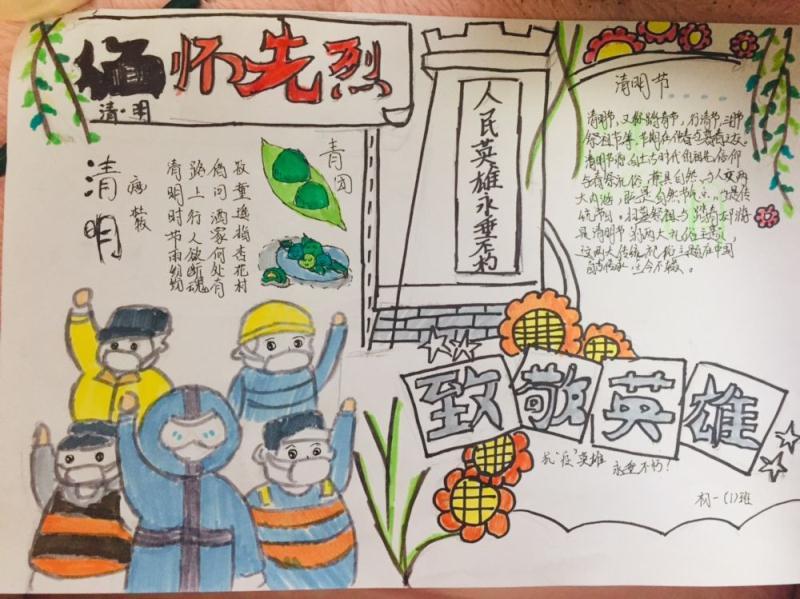 缅怀先烈
清·明
清明
杜牧
清明时节雨纷纷
路上行人欲断魂
借问酒家何处有
牧童遥指杏花村
青团
人民英雄永垂不朽
清明节
清明节，又称踏青节，行清节、三月节
祭祖节等，节期在仲春与暮春之交。
清明节源自上古时代的祖先信仰
与春祭礼俗，兼具自然与人文两
大内涵，既是自然节气点，也是传
统节日，扫墓祭祖与踏青郊游
是清明节的两大礼俗主题，
这两大传统礼俗主题在中国
自古传承，至今不辍。
致敬英雄
抗“疫”英雄 永垂不朽！
初一(1)班